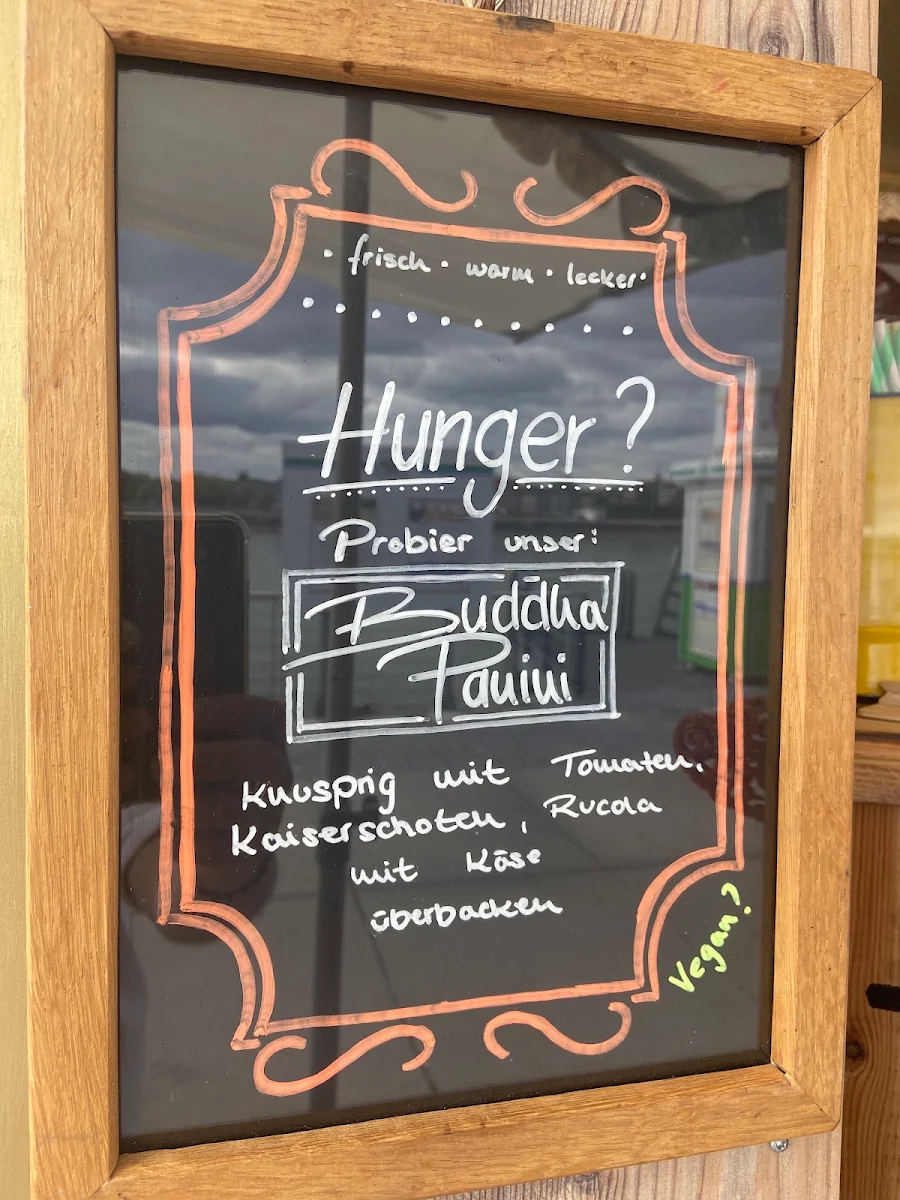 · frisch · warm · lecker ·
Hunger?
Probier unser:
Buddha
Panini
Knusprig mit Tomaten,
Kaiserschoten, Rucola
mit Käse
überbacken
Vegan?